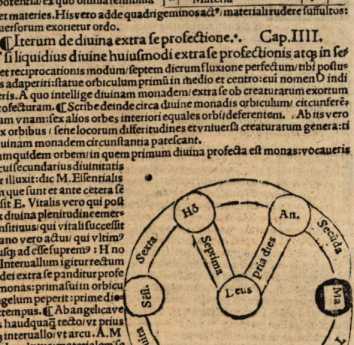 potentia/ex quo omnia femina
Materia
et materies. His vero adde quadrigeminos act⁹. materiali rudere suffultos:
uersorum exorietur ordo.
¶ Iterum de diuina extra se profectione. Cap. IIII.
Si liquidius diuine huiusmodi extra se profectionis atq; in se
et reciprocationis modum/septem dierum fluxione perfectum/tibi postu-
s adaperiri: statue orbiculum primū in medio et centro: cui nomen D indi
eris. A quo intellige diuinam monadem/extra se ob creaturarum exortum
ofecturam. ¶ Scribe deinde circa diuine monadis orbiculum/circunferē
am vnam: sex alios orbes interiori equales orbi/deferentem. Ab iis vero
x orbibus
uinam monadem circunstantia patescant.
amquidem orbem/in quem primum diuina profecta est monas: vocaueris
cui secundarius diuinitatis
t illuxit: dic M. Essentialis
que sunt et ante cetera sē
sit E. Vitalis vero qui post
diuina plenitudine emer-
nsitiuus/qui vitali successit
ano vero actui/qui vltim⁹
usq; ad esse suprem⁹: H no
Interuallum igitur rectum
dei extra se panditur profe
monas: prima sui in orbicu
ngelum peperit: prime die
tempus. ¶ Ab angelica ve
s haudquaq̃ recto/vt prius
interuallo: vt arcu. A M
Hō
An.
Sexta
Secūda
Septima
pria dies
Sēs.
Deus
Ma